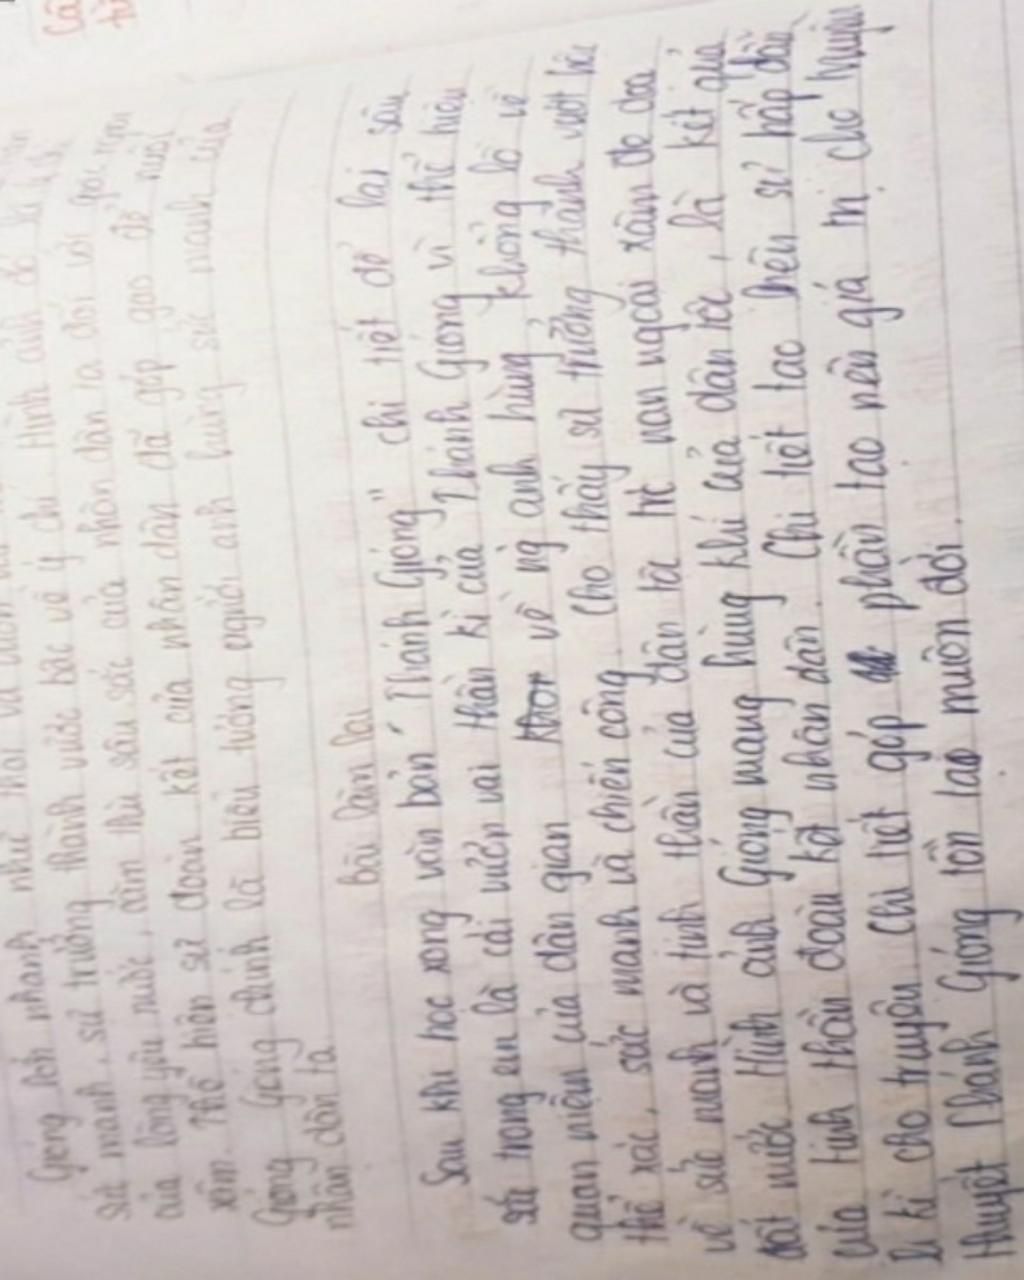 Gióng lớn nhanh như thổi và vươn
sức mạnh, sự trưởng thành vược bậc về ý chí. Hình ảnh đó
của lòng yêu nước, căm thù sâu sắc của nhân dân ta đối với giặc ngoại
xâm. Thể hiện sự đoàn kết của nhân dân đã góp gạo để nuôi
Gióng. Gióng chính là biểu tượng người anh hùng sức mạnh của
nhân dân ta
bài làm
Sau khi học xong văn bản "Thánh Gióng" chi tiết để lại sâu
sắc trong em là cái vươn vai thần kì của Thánh Gióng vì thể hiện
quan niệm của dân gian về ng anh hùng khổng lồ về
thể xác, sức mạnh và chiến công. Cho thấy sự trưởng thành vượt bậc
về sức mạnh và tinh thần của dân tộc trc nạn ngoại xâm đe dọa
đất nước. Hình ảnh Gióng mang hùng khí của dân tộc, là kết quả
của tinh thần đoàn kết nhân dân. Chi tiết tạo nên sự hấp dẫn
li kì cho truyện. Chi tiết góp phần tạo nên giá trị cho truyền
thuyết Thánh Gióng tồn tại muôn đời.